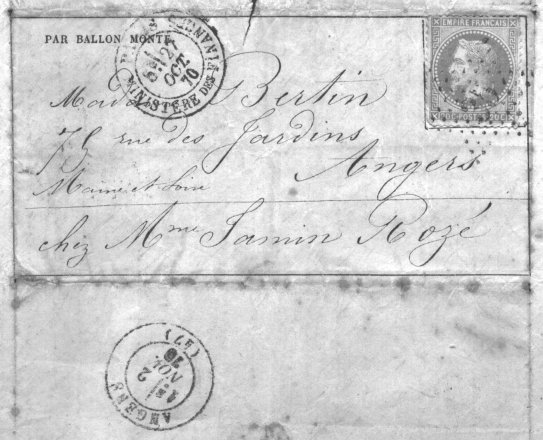 PAR BALLON MONTÉ
PARIS MINISTÈRE DES FINANCES
27
OCT
70
EMPIRE FRANÇAIS
20 C POSTES 20 C
Madame Bertin
75 rue des Jardins
Angers
Maine et Loire
chez Mme Jamin Rozé
ANGERS
2
NOV.
70
(47)